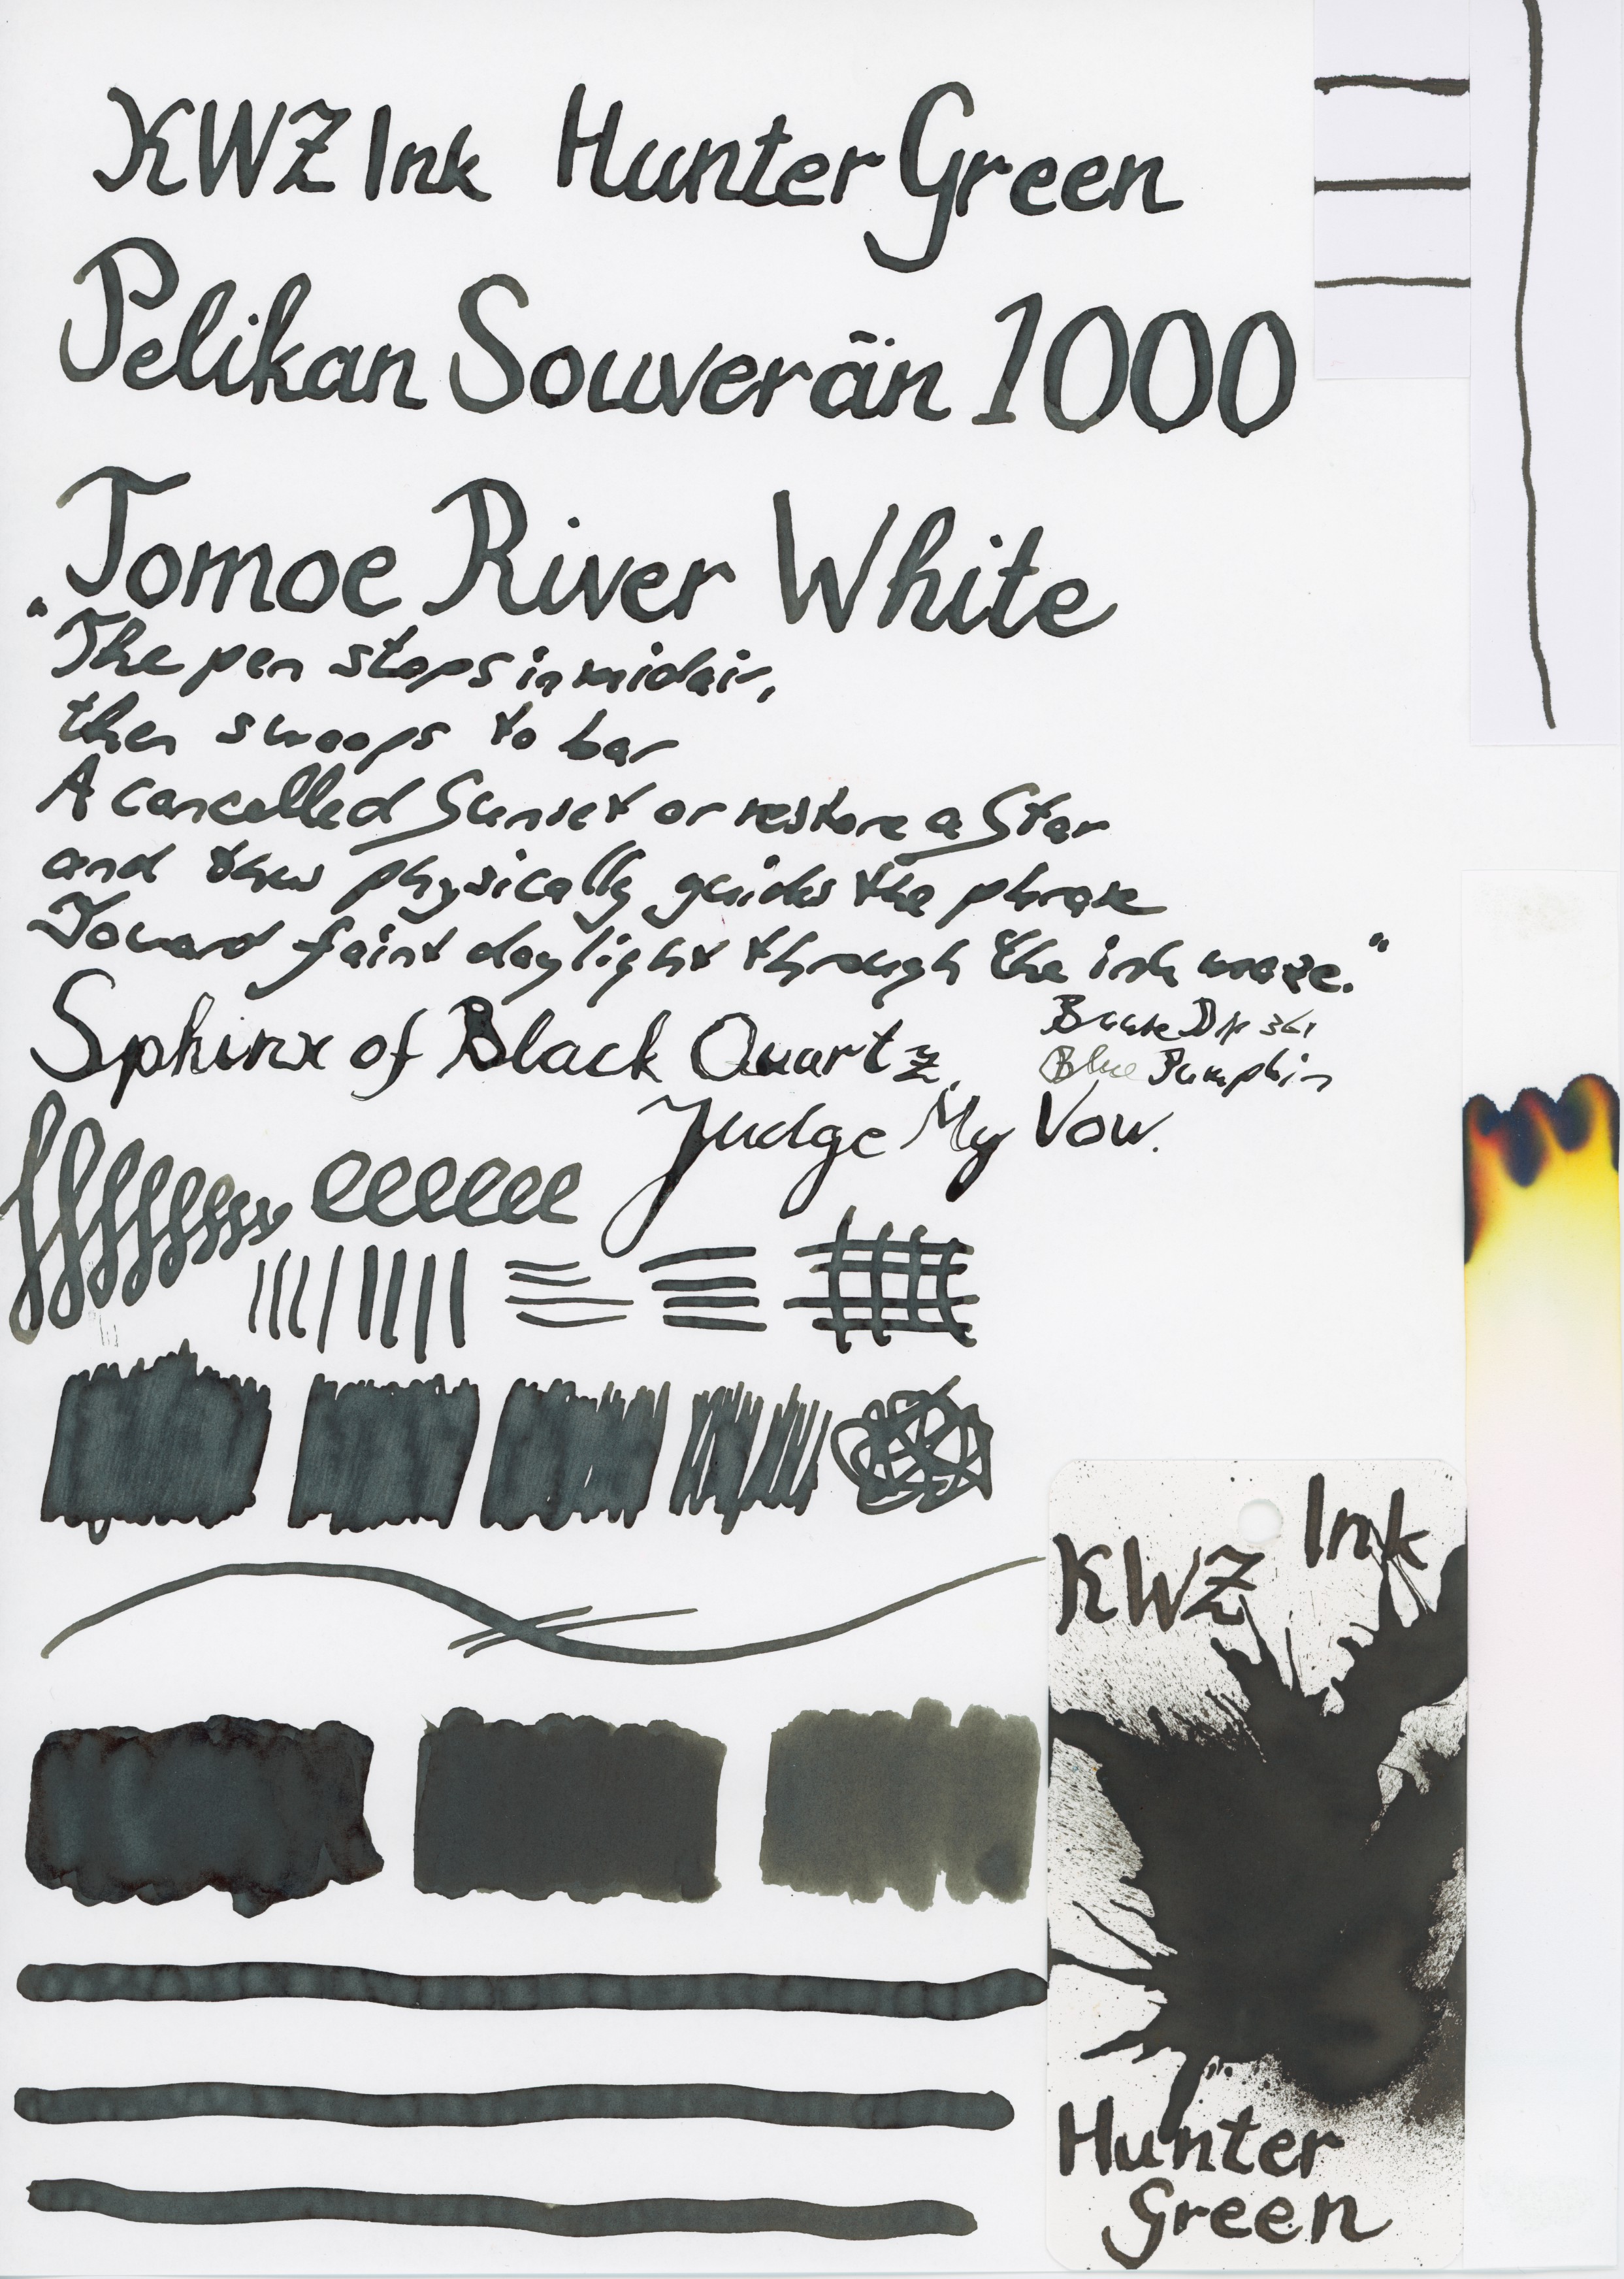 KWZ Ink Hunter Green
Pelikan Souverän 1000
Tomoe River White
"The pen stops in midair,
then swoops to bar
A cancelled Sunset or restore a Star
and thus physically guides the phrase
Toward faint daylight through the ink maze."
Sphinx of Black Quartz,
Brause Dip 361
Blue Pumpkin
Judge My Vow.
KWZ Ink
Hunter
Green